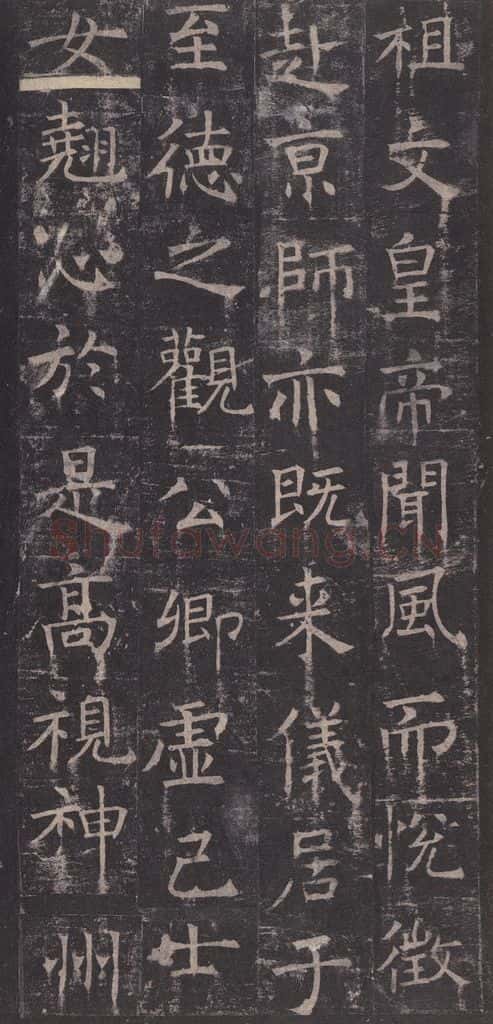 祖文皇帝聞風而悅徵
赴亰師亦既来儀居于
至徳之觀公卿虛己士
女翹心於是髙視神州
Shufawang.CN